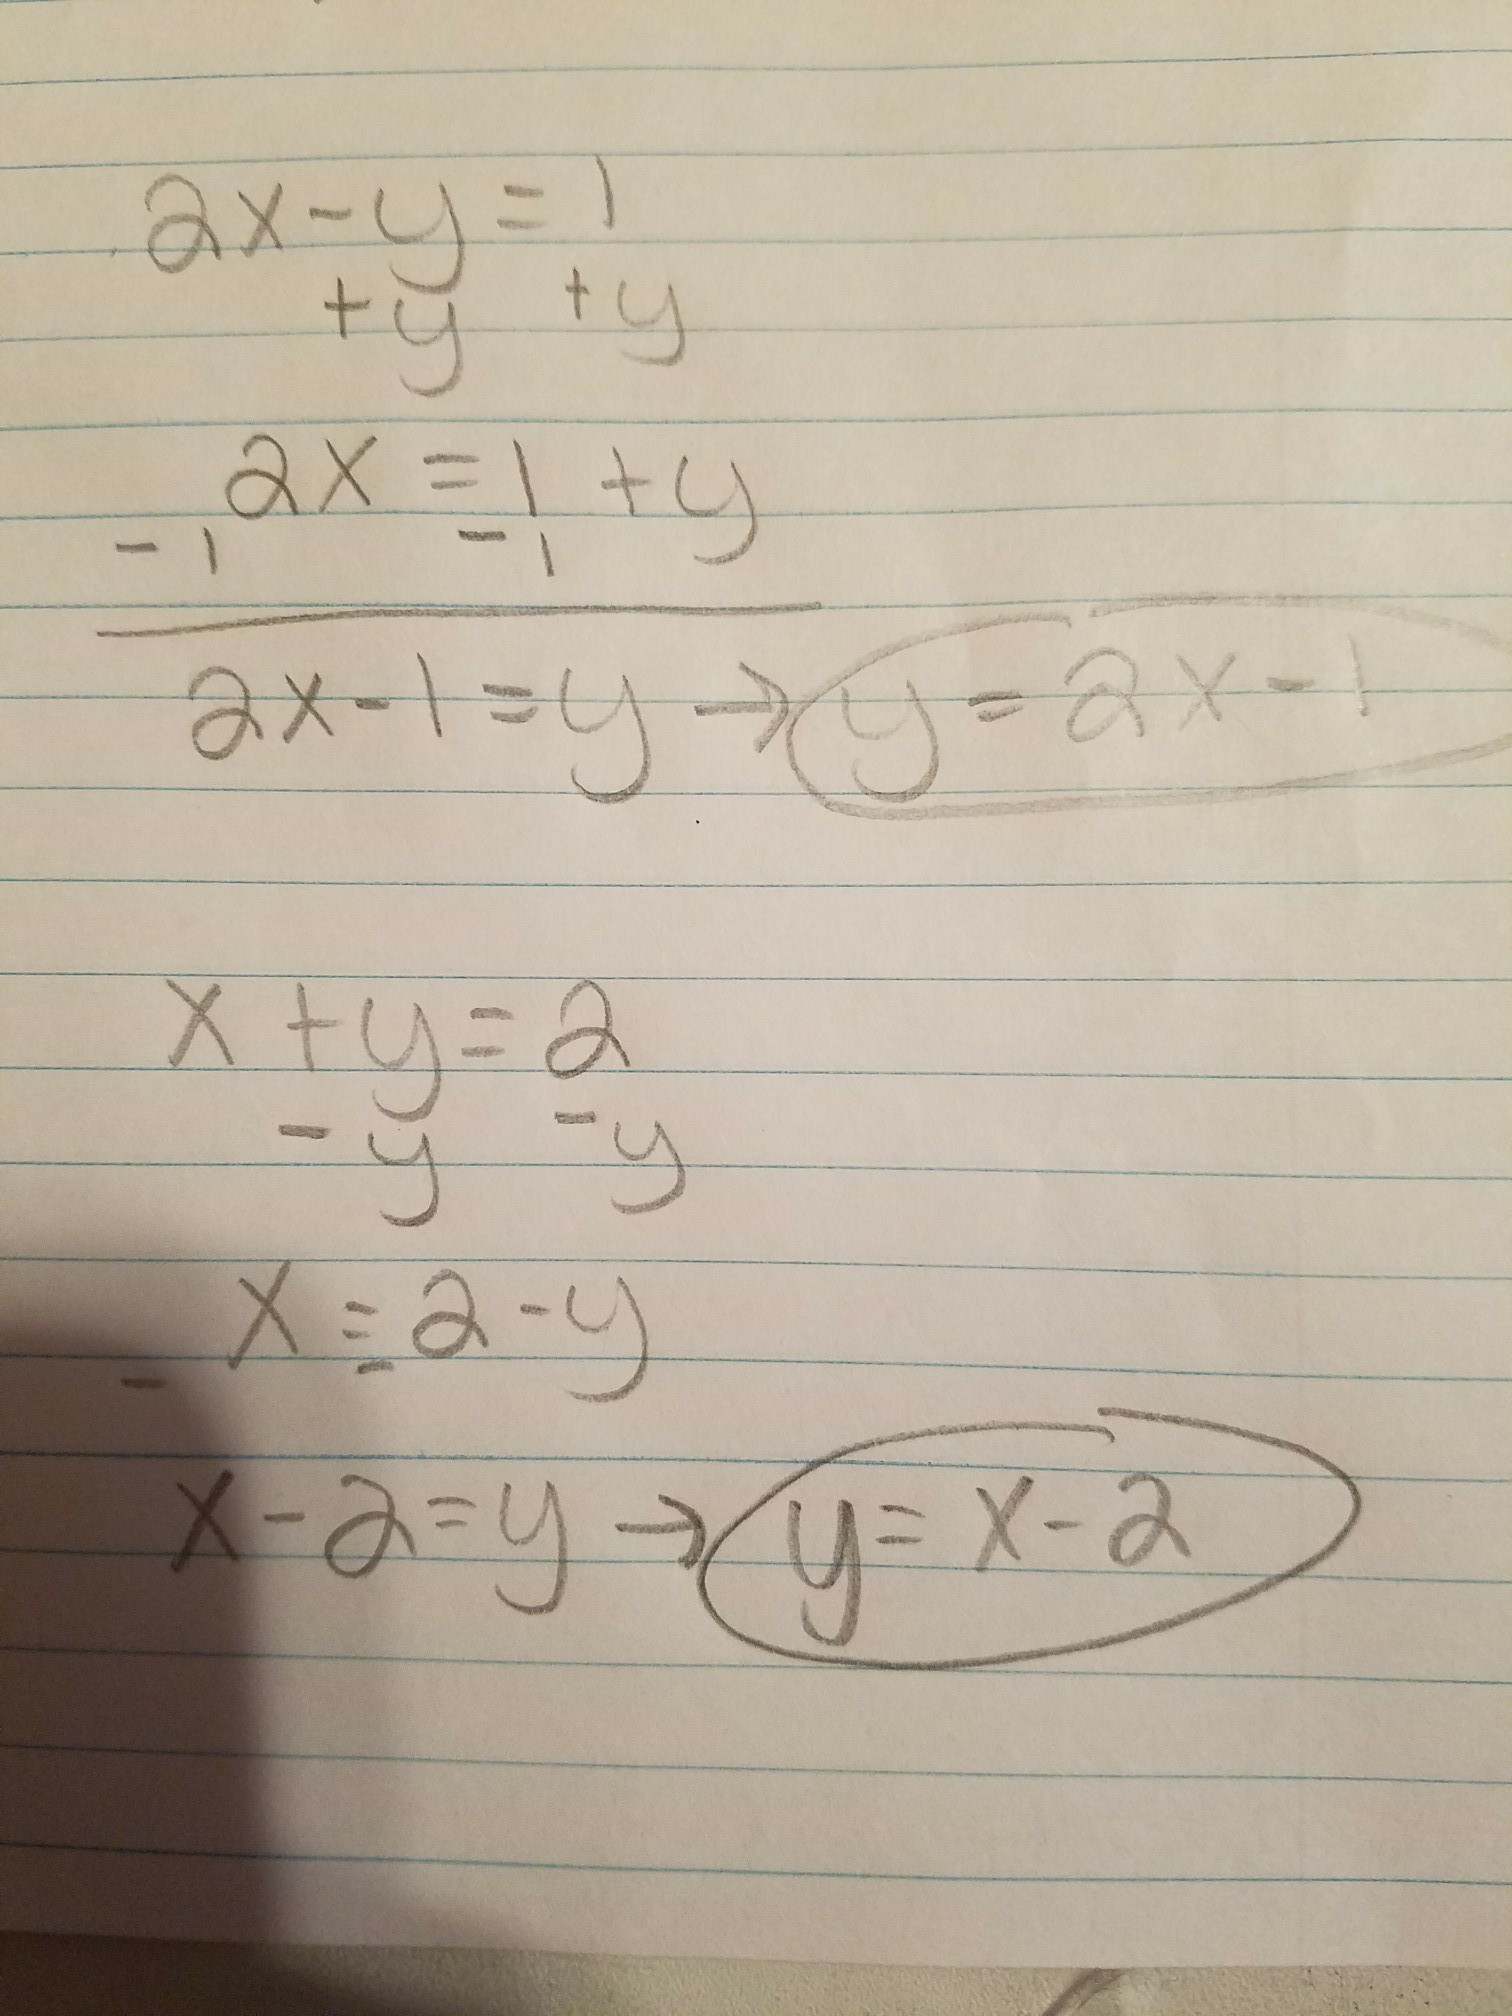 2x-y=1
+y +y
2x=1+y
-1 -1
2x-1=y→y=2x-1
x+y=2
-y -y
x=2-y
- -
x-2=y→y=x-2